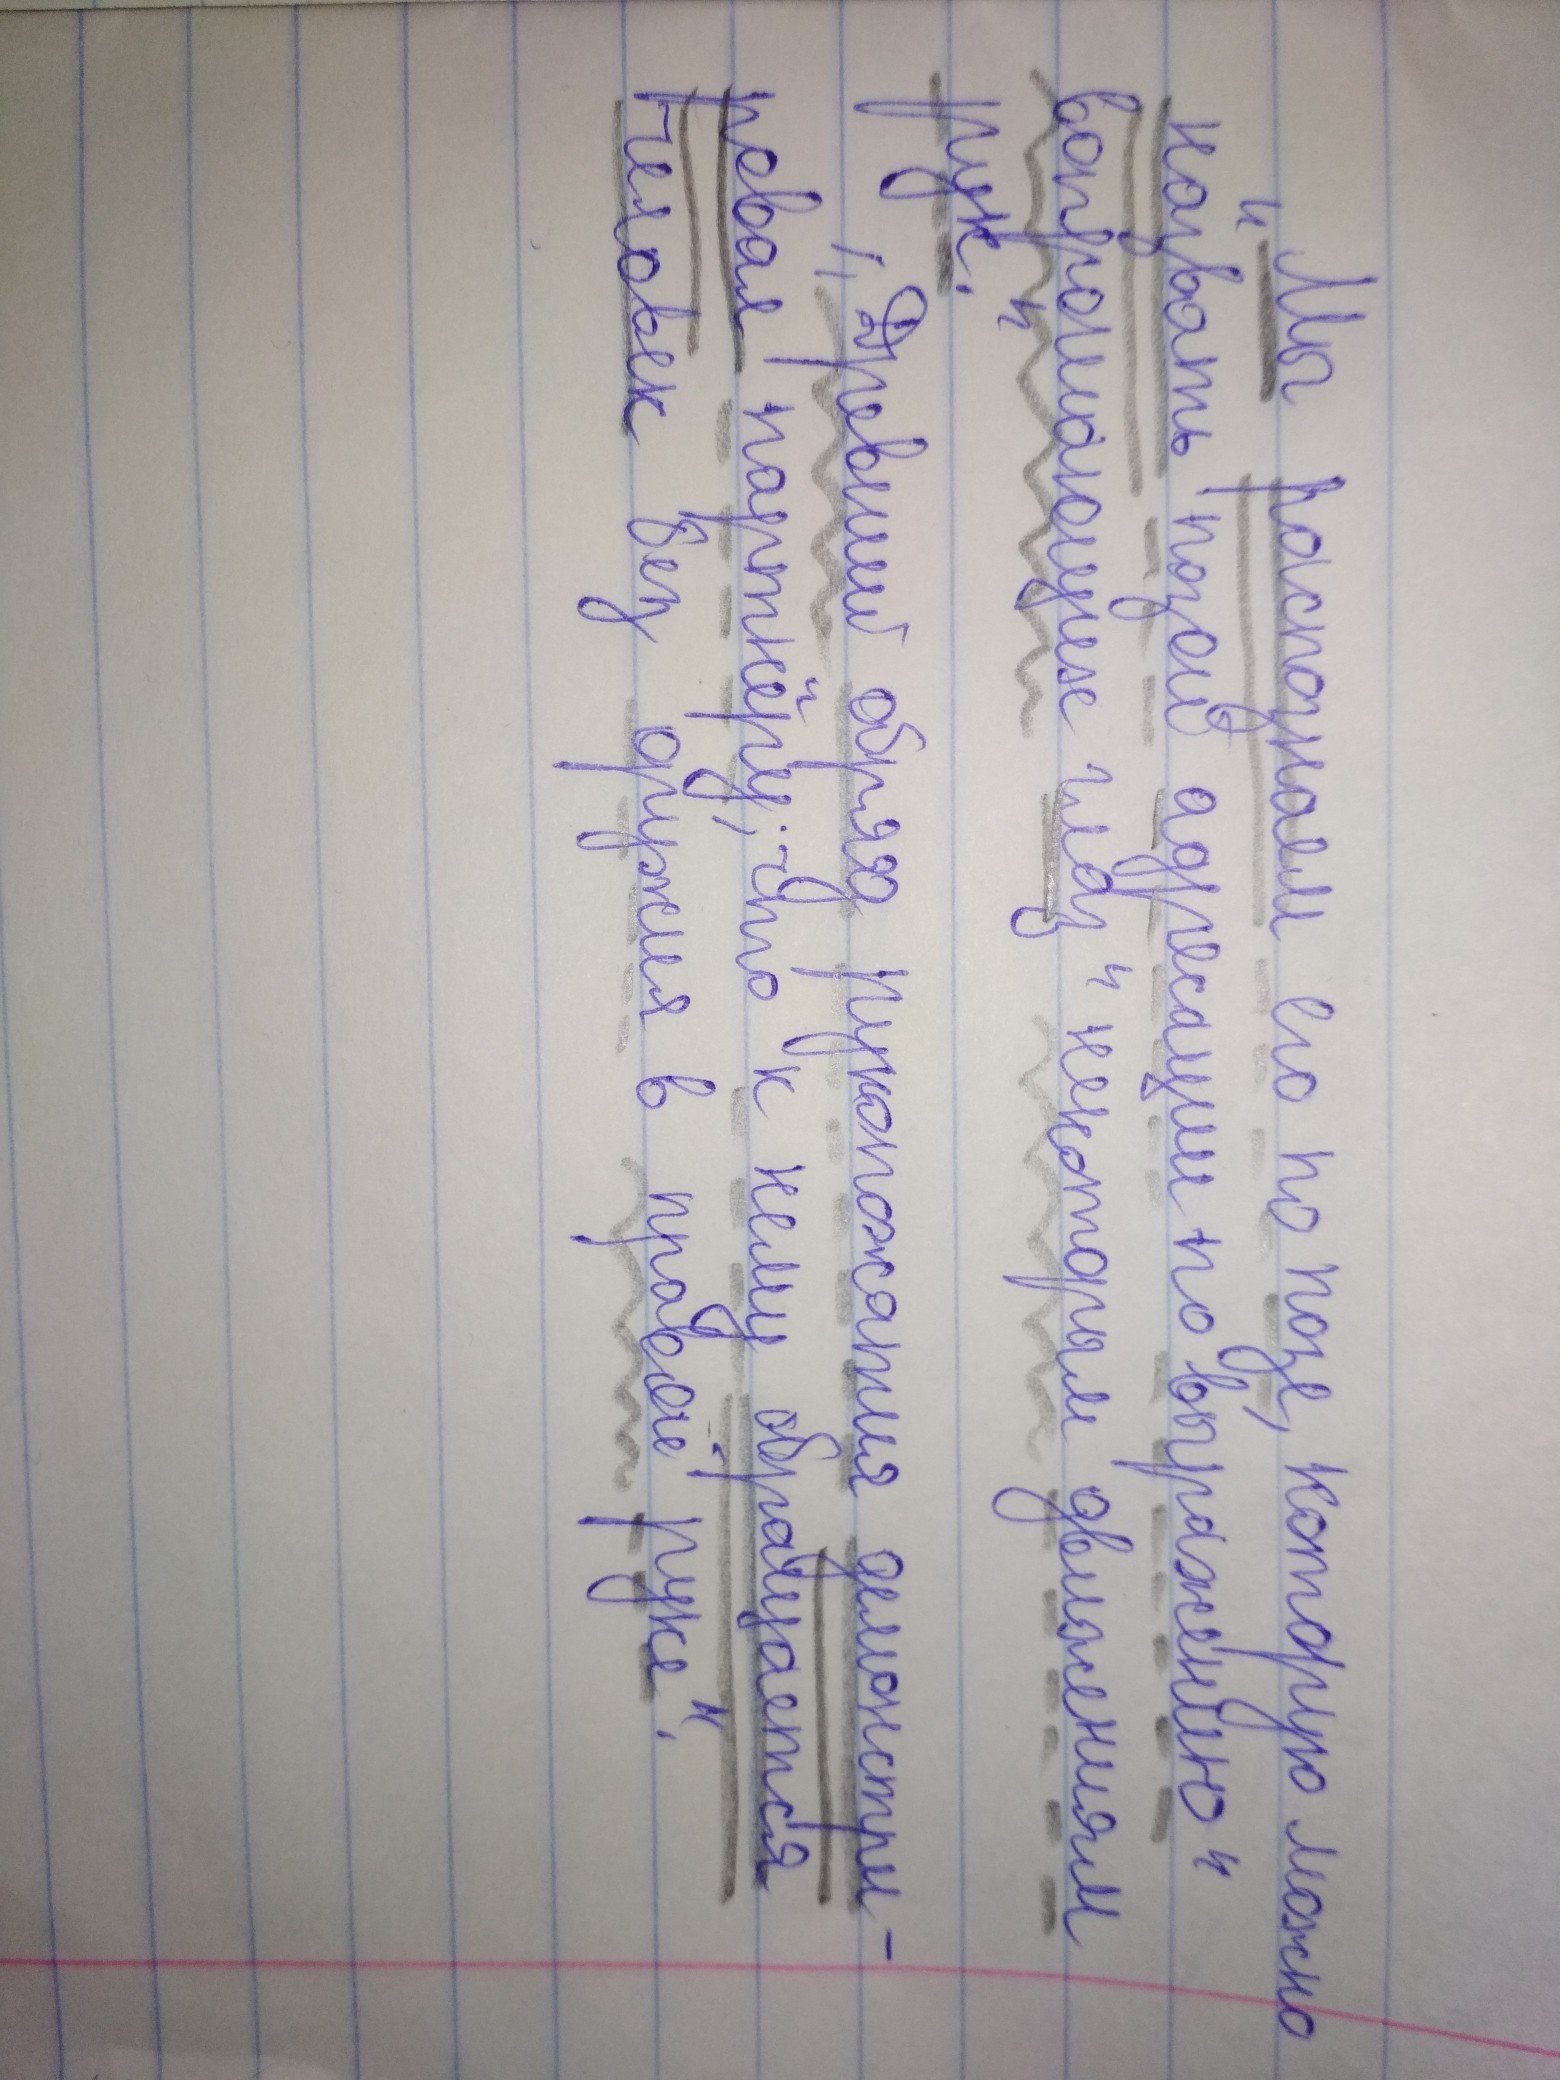 "Мы распознаем его по позе, которую можно
назвать "позой адресации + по выражению"
вопрошающих глаз" некоторым движениям
рук."
"Древний обряд рукопожатия демонстри-
ровал партнёру, что к нему обращается
человек без оружия в правой руке".